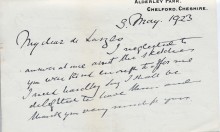 ALDERLEY PARK,
CHELFORD, CHESHIRE.
3 May. 1923
My dear de Laszlo
I neglected to
answer at once about the sketches
you were kind enough to offer me
I need hardly say I shall be
delighted to have them and
thank you very much for yours